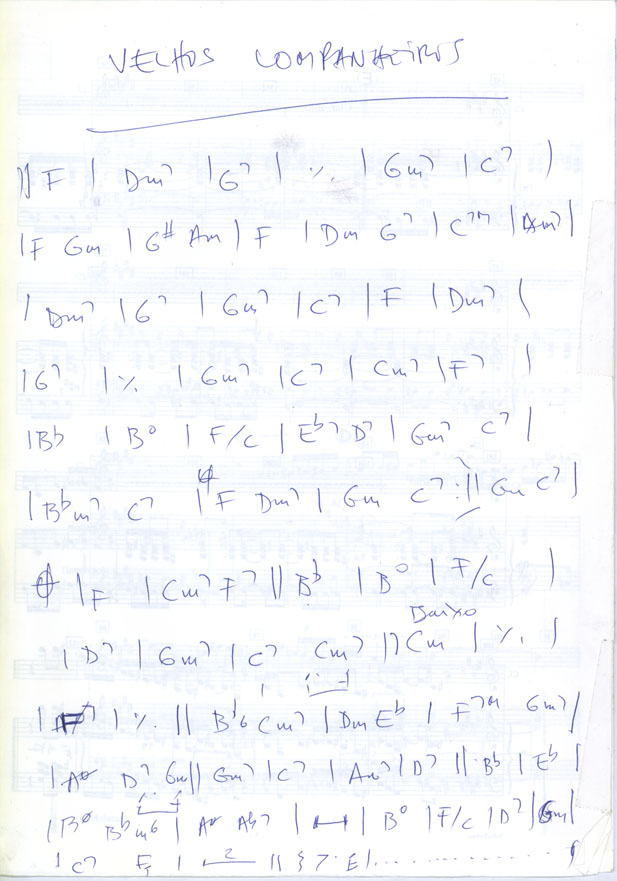 VELHOS COMPANHEIROS
|| F | Dm7 | G7 | ٪ | Gm7 | C7 |
| F Gm | G# Am | F | Dm G7 | C7M | Am7 |
| Dm7 | G7 | Gm7 | C7 | F | Dm7 |
| G7 | ٪ | Gm7 | C7 | Cm7 | F7 |
| Bb | Bº | F/C | Eb7 D7 | Gm7 C7 |
| Bbm7 C7 | F Dm7 | Gm C7 :|| Gm C7 |
| F | Cm7 F7 || Bb | Bº | F/C |
Baixo
| D7 | Gm7 | C7 Cm7 || Cm | ٪ |
| F7 | ٪ || Bb6 Cm7 | Dm Eb | F7M Gm7 |
| Aø D7 Gm || Gm7 | C7 | Am7 | D7 || Bb | Eb |
| Bº Bbm6 | Aø Ab7 | | Bº | F/C | D7 | Gm |
| C7 F | 2 ||